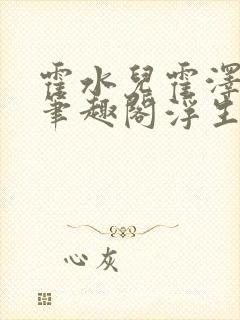 霍水兒霍澤
筆趣閣浮生
心灰